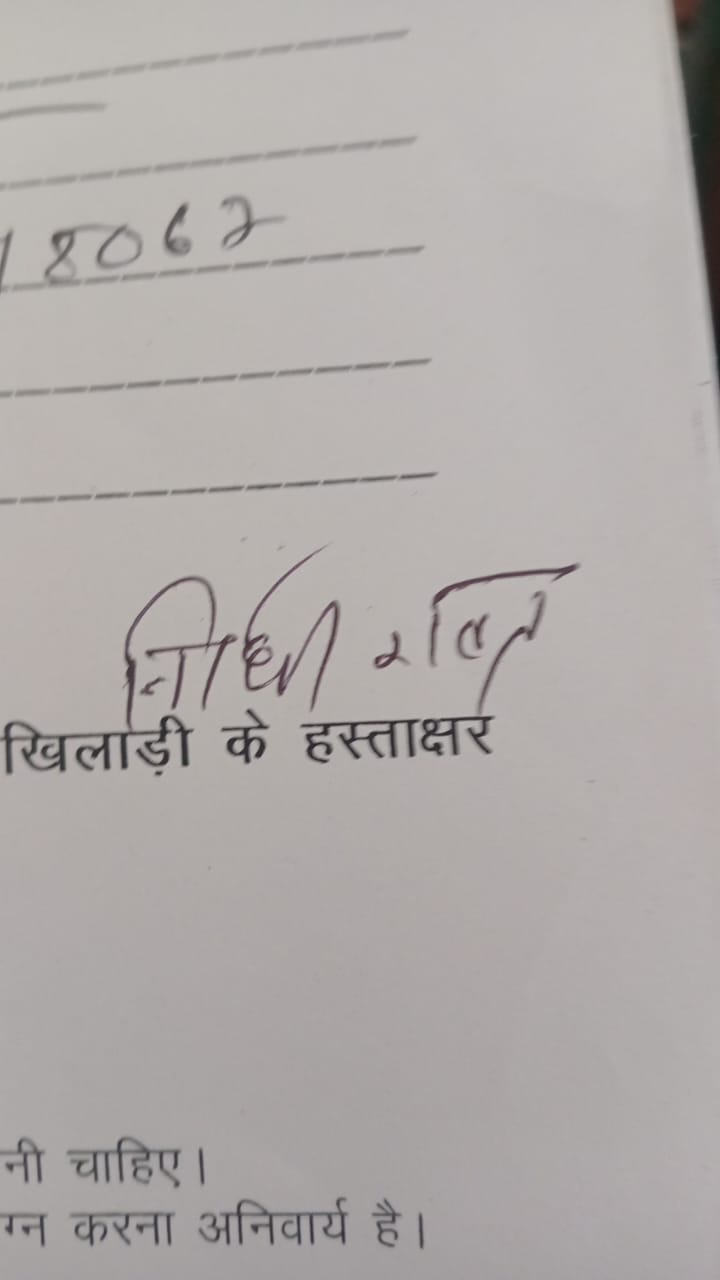 18062
निधी रावत
खिलाड़ी के हस्ताक्षर
नी चाहिए।
ग्न करना अनिवार्य है।